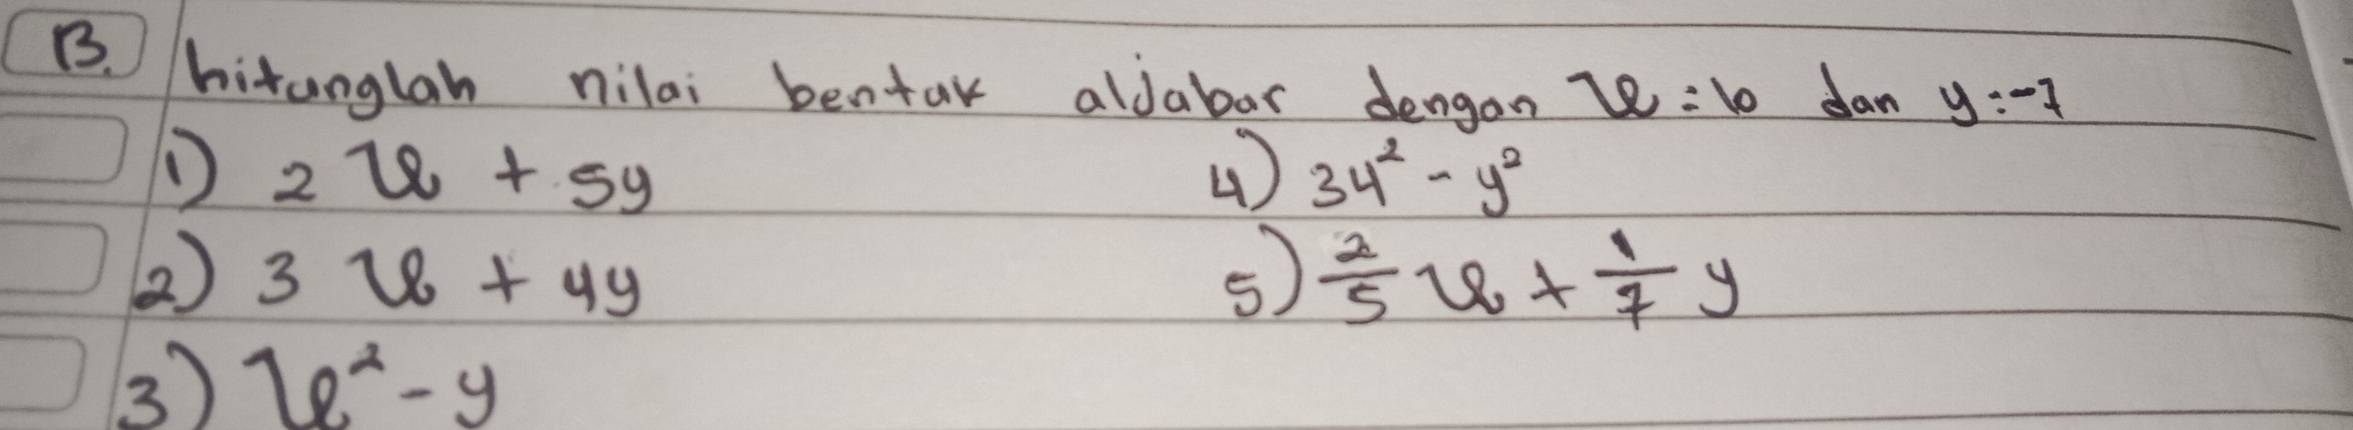 B. hitunglah nilai bentuk aljabar dengan x = 10 dan y = -7
1) 2 x + 5y
4) 34² - y²
2) 3 x + 4y
5) 2/5 x + 1/7 y
3) x² - y